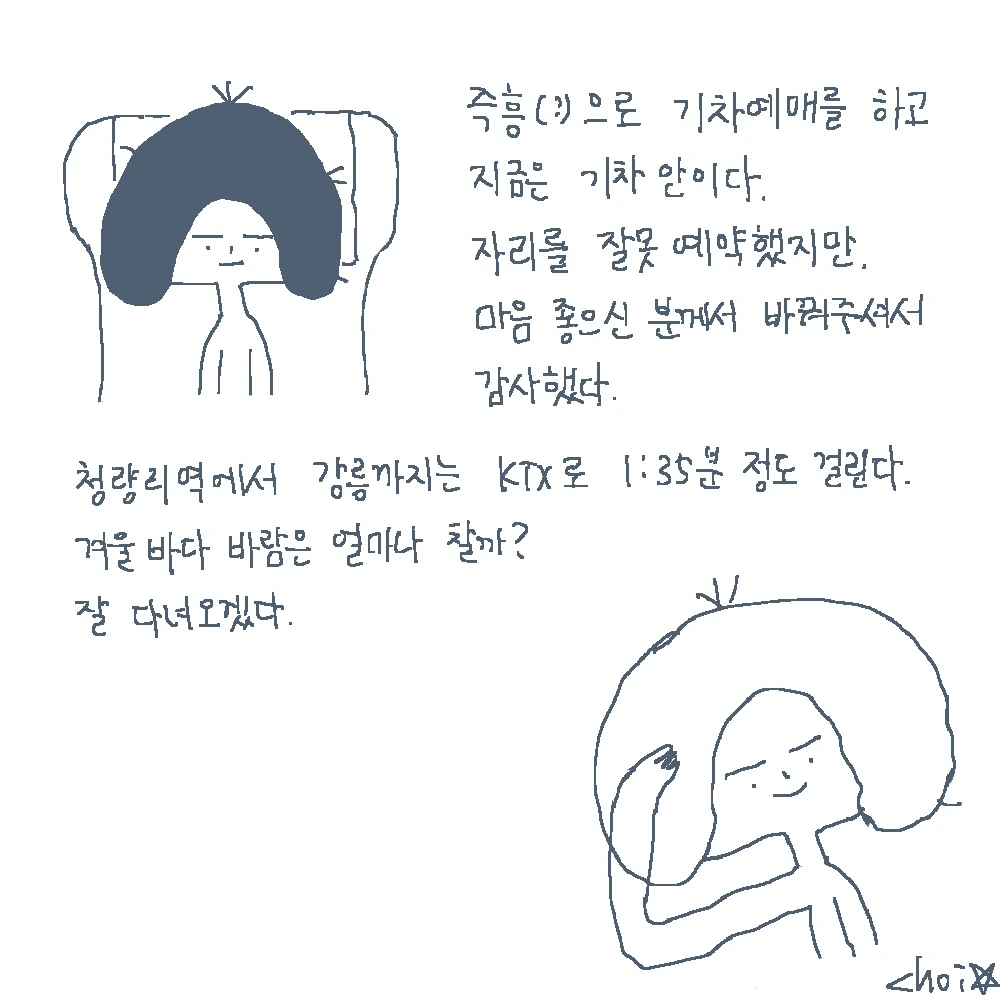 즉흥(?)으로 기차예매를 하고
지금은 기차 안이다.
자리를 잘못 예약했지만,
마음 좋으신 분께서 바꿔주셔서
감사했다.
청량리역에서 강릉까지는 KTX로 1:35분 정도 걸린다.
겨울 바다 바람은 얼마나 찰까?
잘 다녀오겠다.
choi☆